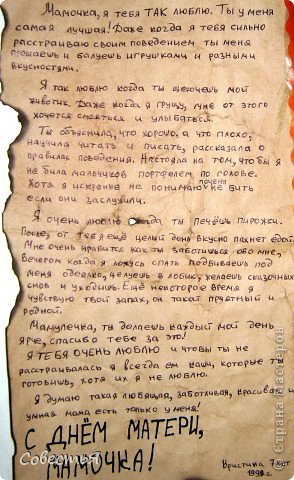 Мамочка, я тебя ТАК люблю. Ты у меня
самая лучшая! Даже когда я тебя сильно
расстраиваю своим поведением ты меня
прощаешь и балуешь игрушками и разными
вкусностями.
Я так люблю когда ты щекочешь мой
животик. Даже когда я грущу, мне от этого
хочется смеяться и улыбаться.
Ты объяснила, что хорошо, а что плохо,
научила читать и писать, рассказала о
правилах поведения. Настояла на том, что бы я
не била мальчиков портфелем по голове.
Хотя я искренне не понимаю почему не бить
если они заслужили.
Я очень люблю когда ты печёшь пирожки.
После, от тебя ещё целый день вкусно пахнет едой.
Мне очень нравится как ты заботишься обо мне,
Вечером когда я ложусь спать подбиваешь под
меня одеялко, целуешь в лобик, желаешь сказочных
снов и уходишь. Ещё некоторое время я
чувствую твой запах, он такой приятный и
родной.
Мамулечка, ты делаешь каждый мой день
ярче, спасибо тебе за это!
Я ТЕБЯ ОЧЕНЬ ЛЮБЛЮ и чтобы ты не
расстраивалась я всегда ем каши, которые ты
готовишь, хотя их я не люблю.
Я думаю такая любящая, заботливая, красивая и
умная мама есть только у меня!
С ДНЁМ МАТЕРИ,
МАМОЧКА!
Кристина 7 лет
1998г.
Совестья
Страна Мастеров